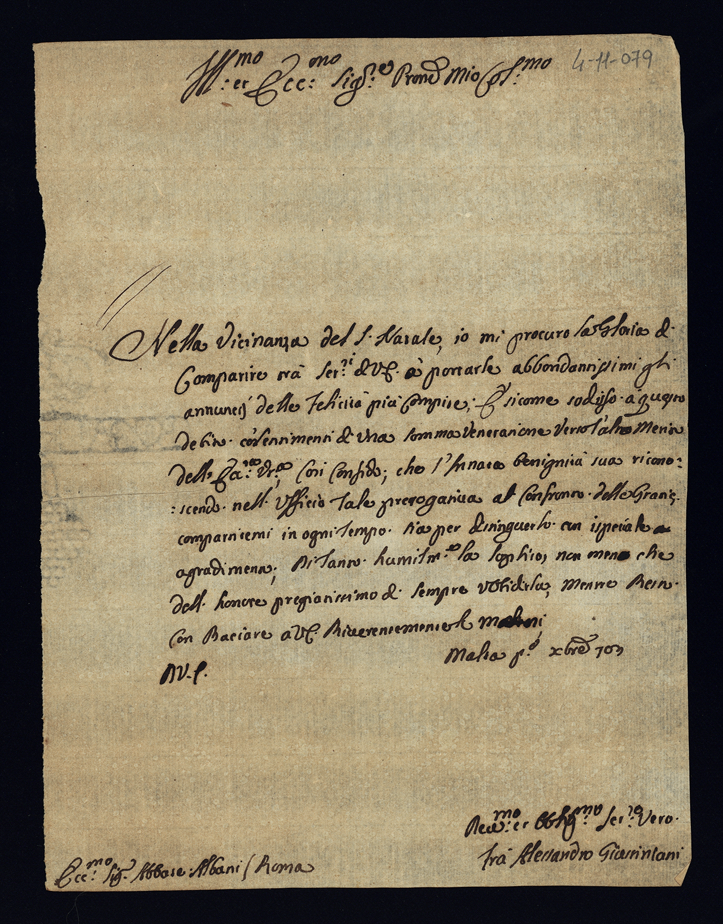 Ill:mo et Ecc:mo Sig:re Prone Mio Col:mo 4-11-079
Nella Vicinanza del S. Natale, io mi procuro la Gloria di
Comparire trà Ser:ri di V.E. à portarle abbondantissimi gli
annuncij delle felicità più Compite; E sicome sodisfo à questo
debito con sentimenti di una somma Venerazione verso l'alto Merito
dell' Ecc:za Vra, Così Confido, che l'Innata benignità sua ricono:
:scendo nell' Ufficio tale prerogativa al Confronto delle Grazie
compartitemi in ogni tempo sia per distinguerlo con ispeciale
agradimento; Di tanto humilm:te la supplico, non meno che
dell' honore pregiatissimo di sempre ubidirla, mentre Resto
con Baciare a V.E. Riverentemente le mani
Malta p:o xbre 703
D.V.E.
Devo:mo et Obblig:mo Ser:re Vero
Frà Alessandro Giustiniani
Ecc:mo Sig:r Abbate Albani / Roma